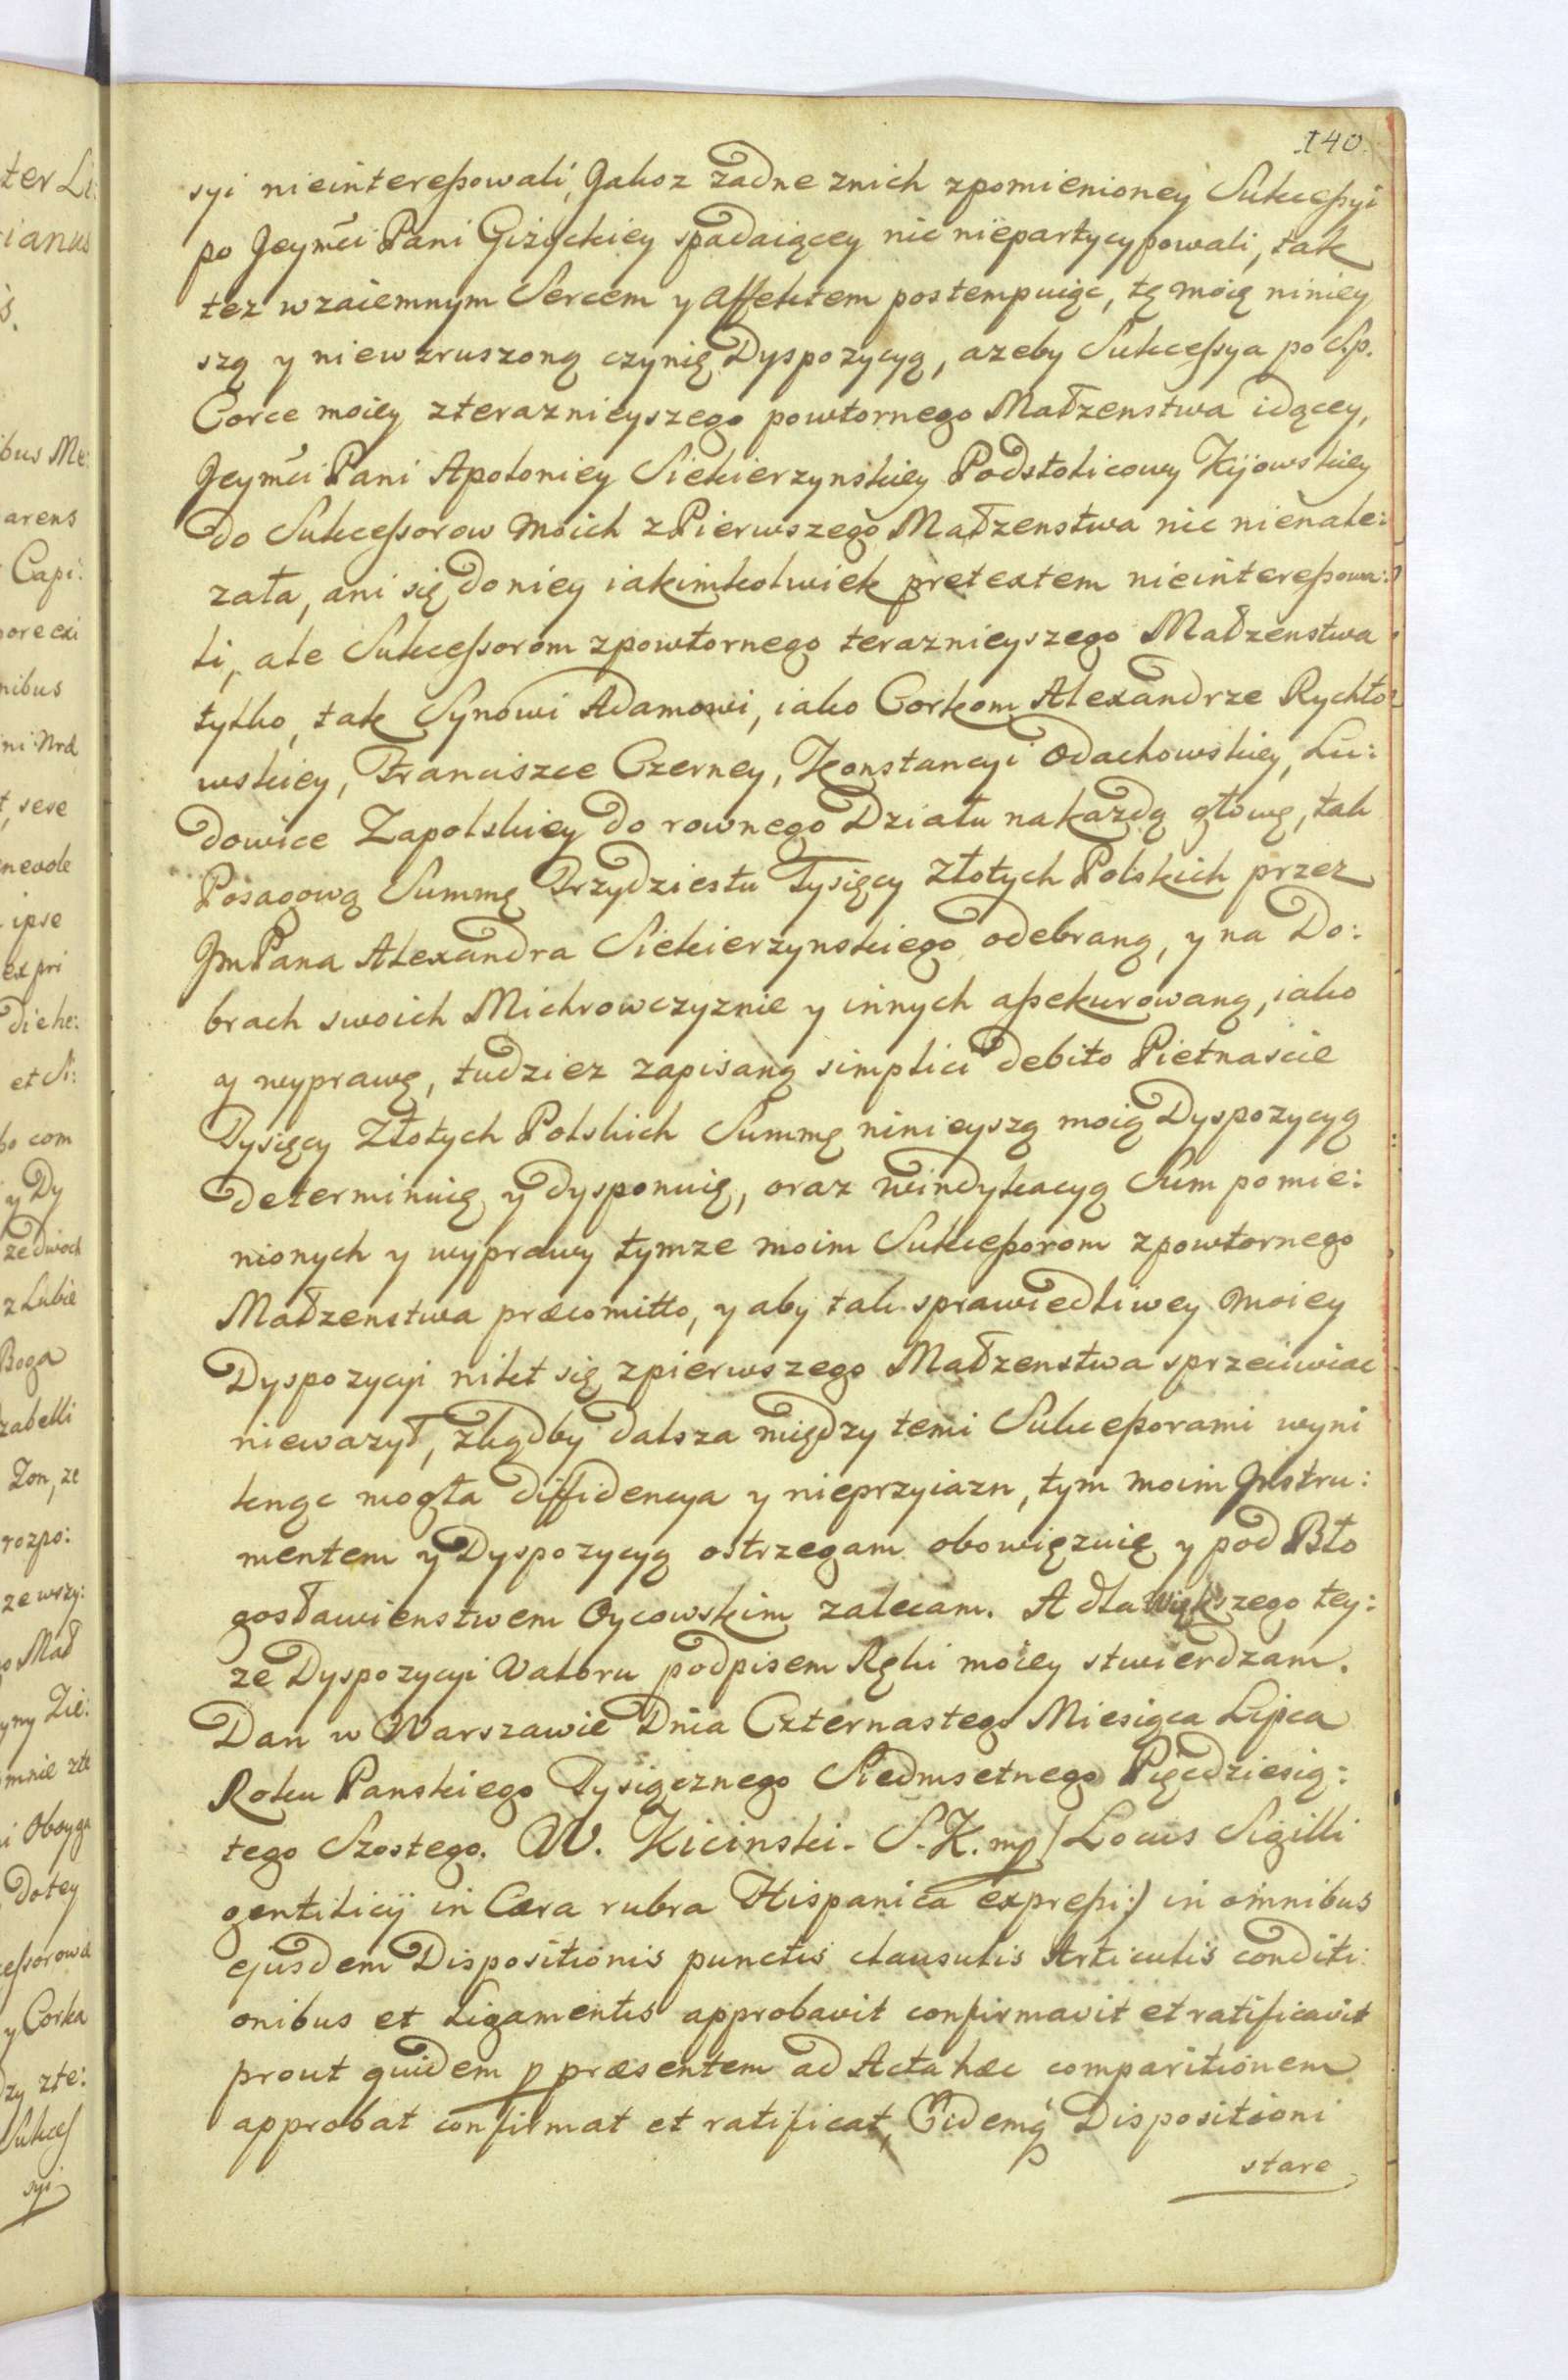 140.
syi nieinteressowali, Jakoz zadne znich zpomienioney Sukcessyi
po Jeymci Pani Gizyckiey spadaiącey nic niepartycypowali, tak
tez wzaiemnym Sercem y Affektem postempuiąc, tę moię niniey
szą y niewzruszoną czynię Dyspozycyą, azeby Sukcessya po S.p.
Corce moiey zteraznieyszego powtornego Małzenstwa idącey,
Jeymci Pani Apoloniey Siekierzynskiey Podstolicowy Kijowskiey
do Sukcessorow moich z Pierwszego Małzenstwa nic nienale:
zała, ani się do niey iakimkolwiek pretextem nieinteressowa:
li, ale Sukcessorom zpowtornego teraznieyszego Małzenstwa
tylko, tak Synowi Adamowi, iako Corkom Alexandrze Rychło
wskiey, Franciszce Czerney, Konstancyi Odachowskiey, Lu:
dowice Zapolskiey do rownego Działu nakazdą głowę, tak
Posagową Summę Trzydziestu Tysięcy Złotych Polskich przez
JmPana Alexandra Siekierzynskiego odebraną, y na Do:
brach swoich Michrowczyznie y innych assekurowaną, iako
y wyprawę, tudziez zapisaną simplici debito Pietnascie
Tysięcy Złotych Polskich Summę ninieyszą moią Dyspozycyą
determinuię y dysponuię, oraz windykacyą Sum pomie:
nionych y wyprawy tymze moim Sukcessorom zpowtornego
Małzenstwa præcomitto, y aby tak sprawiedliwey moiey
Dyspozycyi nikt się zpierwszego Małzenstwa sprzeciwiac
niewazył, zkądby dalsza między temi Sukcessorami wyni
knąc mogła diffidencya y nieprzyiazn, tym moim Instru:
mentem y Dyspozycyą ostrzegam obowięzuię y pod Bło
gosławienstwem Oycowskim zalecam. A dla większego tey:
ze Dyspozycyi Waloru podpisem Ręki moiey stwierdzam.
Dan w Warszawie Dnia Czternastego Miesiąca Lipca
Roku Panskiego Tysiącznego Siedmsetnego Pięcdziesią:
tego Szostego. W. Kicinski. S. K. mp (Locus Sigilli
gentilicij in Cæra rubra Hispanica expressi:) in omnibus
ejusdem Dispositionis punctis clausulis Articulis conditi:
onibus et Ligamentis approbavit confirmavit et ratificavit
prout quidem p præsentem ad Acta hæc comparitionem
approbat confirmat et ratificat, Eidemq Dispositioni
stare